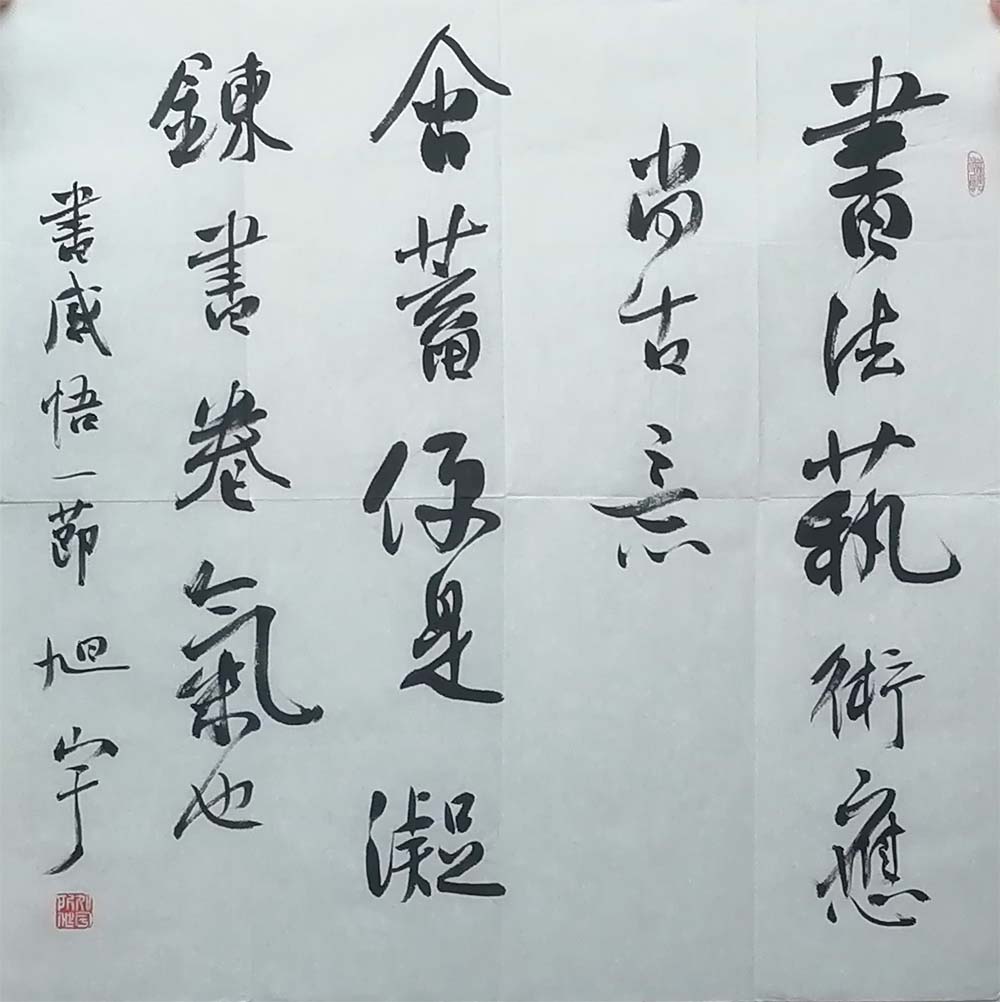 書法蓺術應
尚古意
含蓄便是凝
鍊書卷氣也
書感悟一節 旭宇